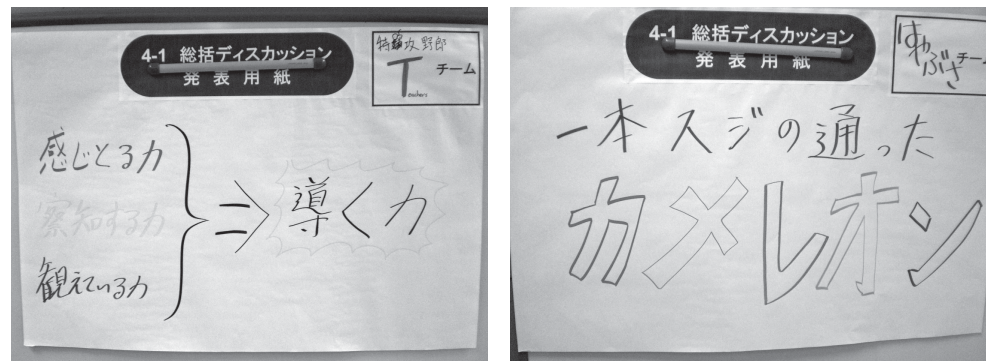 4-1 総括ディスカッション
発表用紙
特攻野郎
Teachers
チーム
感じとる力
察知する力
観えている力
⇒ 導く力
4-1 総括ディスカッション
発表用紙
はやぶさ
チーム
一本スジの通った
カメレオン